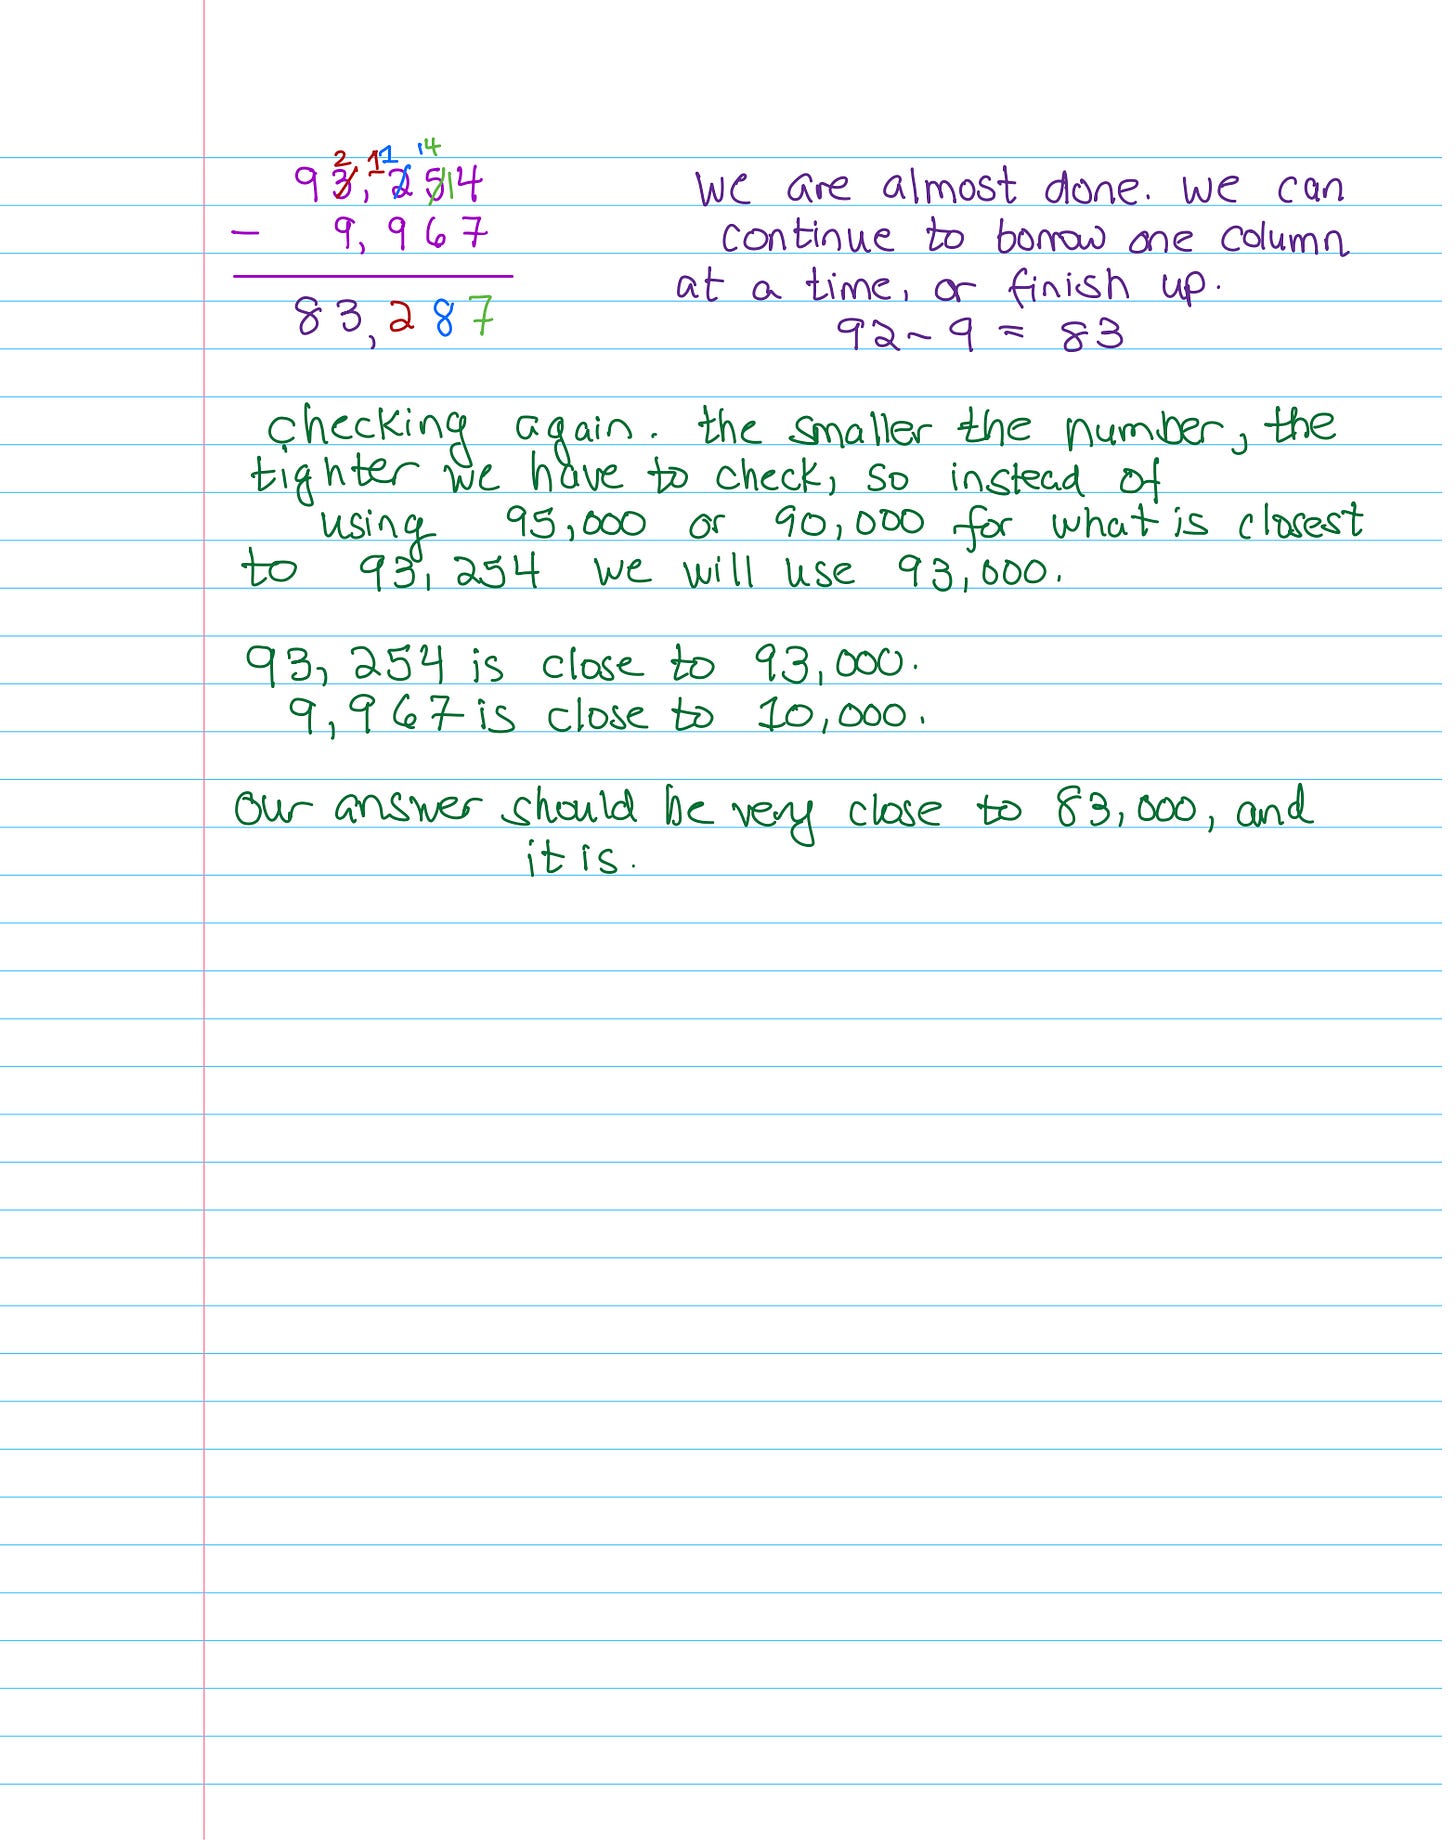 2 11 14
93,2514
- 9,967
83,287
we are almost done. we can
continue to borrow one column
at a time, or finish up.
92 - 9 = 83
checking again. the smaller the number, the
tighter we have to check, so instead of
using 95,000 or 90,000 for what is closest
to 93,254 we will use 93,000.
93,254 is close to 93,000.
9,967 is close to 10,000.
our answer should be very close to 83,000, and
it is.